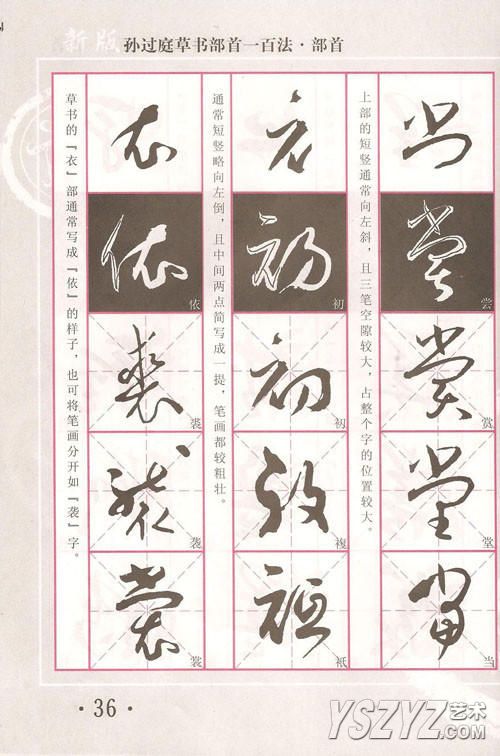 新版 孙过庭草书部首一百法·部首
上部的短竖通常向左斜，且三笔空隙较大，占整个字的位置较大。
尝
赏
堂
当
通常短竖略向左倒，且中间两点简写成一提，笔画都较粗壮。
初
初
複
祇
草书的『衣』部通常写成『依』的样子，也可将笔画分开如『袭』字。
依
裘
袭
裳
·36·
YSZYZ 艺术
.COM